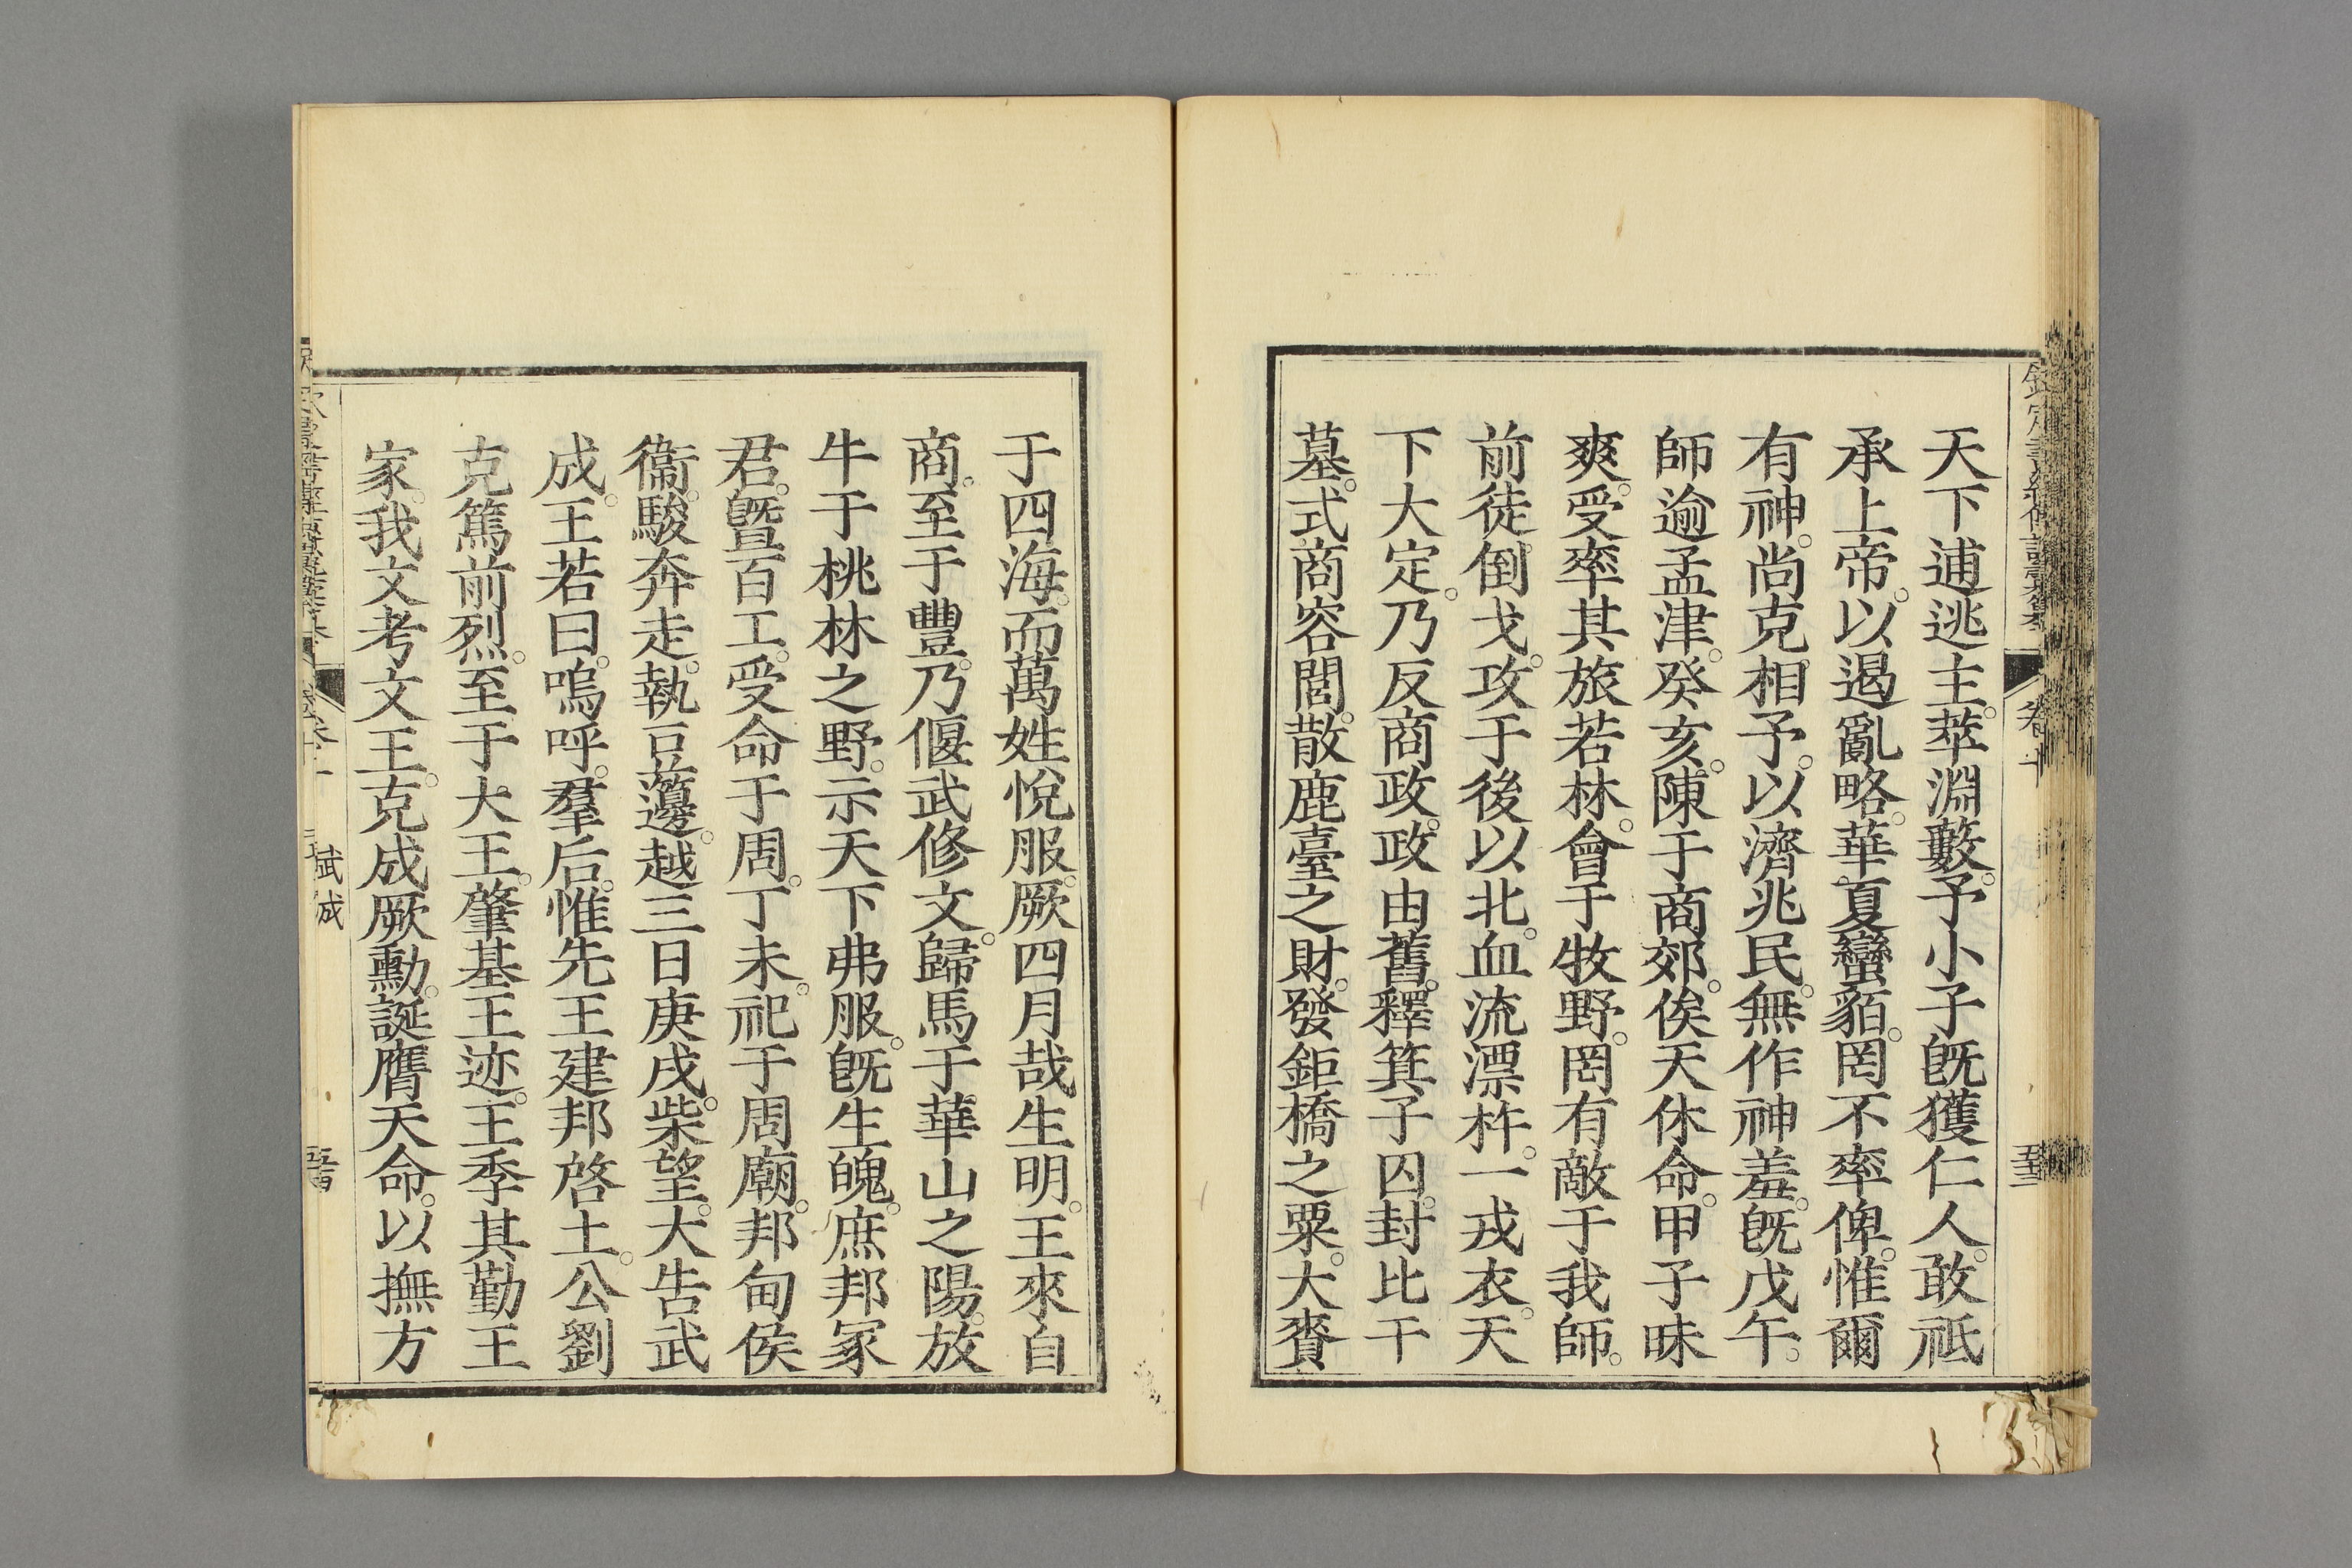 天下逋逃主。萃淵藪。予小子旣獲仁人。敢祗
承上帝。以遏亂略。華夏蠻貊。罔不率俾。惟爾
有神。尚克相予。以濟兆民。無作神羞。旣戊午。
師逾孟津。癸亥。陳于商郊。俟天休命。甲子昧
爽。受率其旅若林。會于牧野。罔有敵于我師。
前徒倒戈。攻于後以北。血流漂杵。一戎衣。天
下大定。乃反商政。政由舊。釋箕子囚。封比干
墓。式商容閭。散鹿臺之財。發鉅橋之粟。大賚
于四海。而萬姓悅服。厥四月哉生明。王來自
商。至于豐。乃偃武修文。歸馬于華山之陽。放
牛于桃林之野。示天下弗服。旣生魄。庶邦冢
君。曁百工。受命于周。丁未。祀于周廟。邦甸侯
衞。駿奔走。執豆籩。越三日庚戌。柴望。大告武
成。王若曰。嗚呼。羣后。惟先王建邦啓土。公劉
克篤前烈。至于大王。肇基王迹。王季其勤王
家。我文考文王。克成厥勳。誕膺天命。以撫方
武成